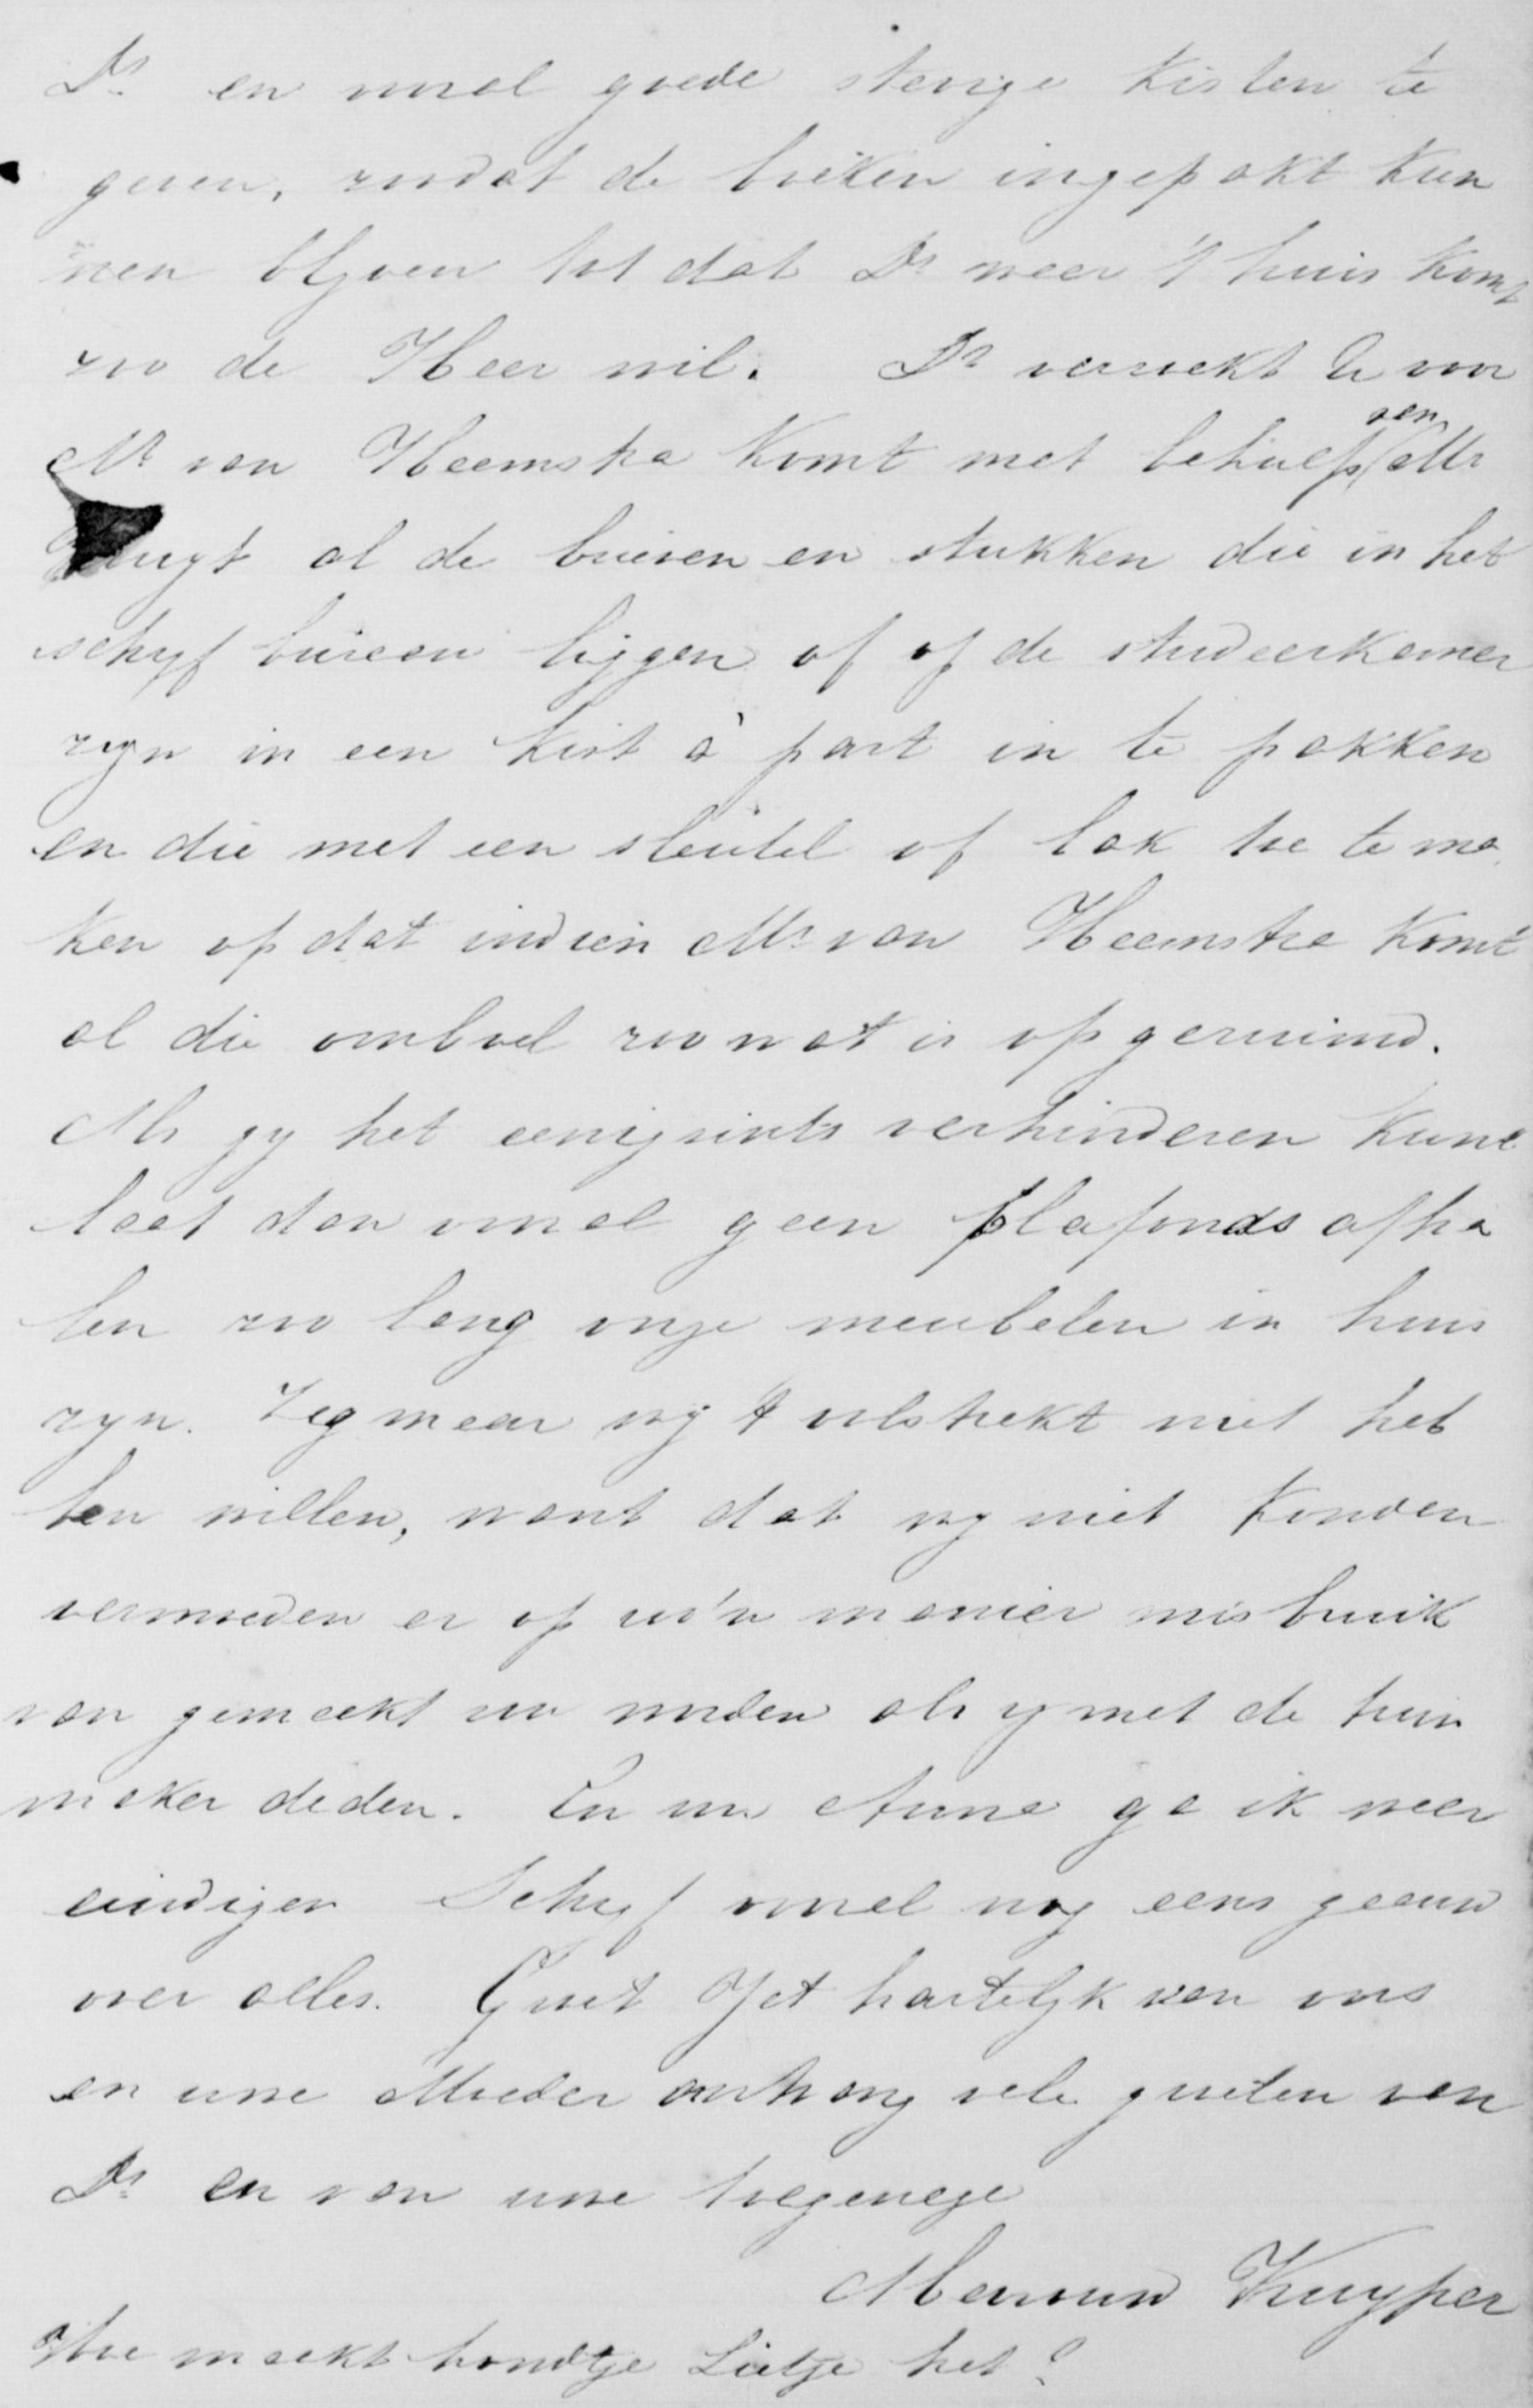 Dr en vooral goede stevige kisten te
geven, zoodat de boeken ingepakt kun
nen blyven tot dat Dr weer 't huis komt
zoo de Heer wil. Dr verzoekt U voor
Mr van Heemstra komt met behulp van Mr
al de brieven en stukken die in het
schryf bureau liggen of op de studeerkamer
zyn in een kist à part in te pakken
en die met een sleutel of lak toe te ma
ken op dat indien Mr van Heemstra komt
al die omboel zoo wat is opgeruimd.
Als gy het eenigzints verhinderen kunt
laat dan vooral geen plafonds afha
len zoo lang onze meubelen in huis
zyn. Zeg maar wy 't volstrekt niet heb
ben willen, want dat wy niet konden
vermoeden er op zoo'n manier misbruik
van gemaakt zou worden als zy met de huis
maker deden. En nu Anna ga ik weer
eindigen Schryf vooral nog eens gaauw
over alles. Groet Jet hartelyk van ons
en uwe Moeder ontvang vele groeten van
Dr en van uwe toegenege
Mevrouw Kuyper
Hoe maakt hondtje Lietje het?